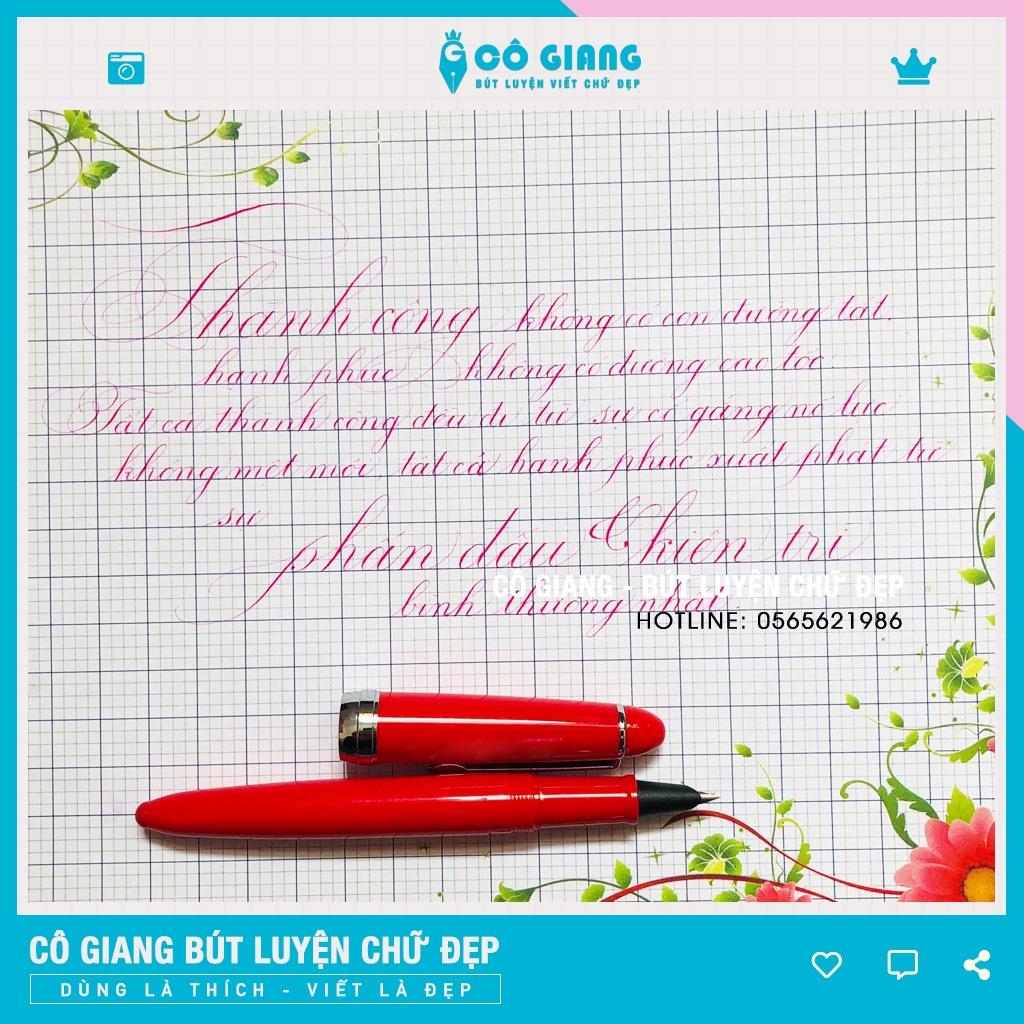 CÔ GIANG
BÚT LUYỆN VIẾT CHỮ ĐẸP
Thành công không có con đường tắt.
hạnh phúc không có đường cao tốc.
Tất cả thành công đều đi từ sự cố gắng nỗ lực
không mệt mỏi, tất cả hạnh phúc xuất phát từ
sự
phấn đấu & kiên trì
bình thường nhất.
CÔ GIANG - BÚT LUYỆN CHỮ ĐẸP
HOTLINE: 0565621986
CÔ GIANG BÚT LUYỆN CHỮ ĐẸP
DÙNG LÀ THÍCH - VIẾT LÀ ĐẸP